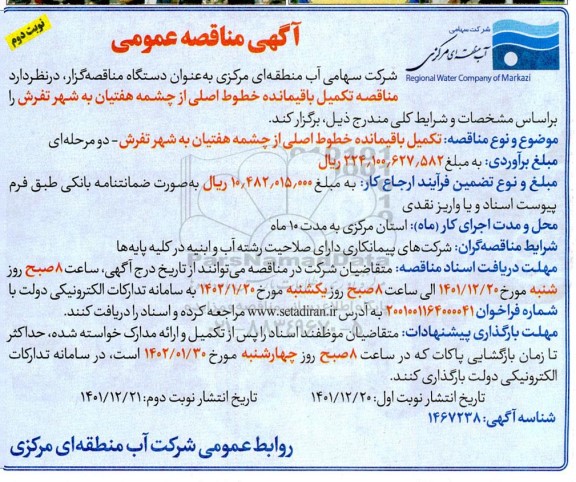 نوبت دوم
آگهی مناقصه عمومی
شرکت سهامی
آب منطقه‌ای مرکزی
Regional Water Company of Markazi
شرکت سهامی آب منطقه‌ای مرکزی به‌عنوان دستگاه مناقصه‌گزار، درنظردارد
مناقصه تکمیل باقیمانده خطوط اصلی از چشمه هفتیان به شهر تفرش را
براساس مشخصات و شرایط کلی مندرج ذیل، برگزار کند.
موضوع و نوع مناقصه: تکمیل باقیمانده خطوط اصلی از چشمه هفتیان به شهر تفرش- دو مرحله‌ای
مبلغ برآوردی: به مبلغ ۲۲۴,۱۰۰,۶۲۷,۵۸۲ ریال
مبلغ و نوع تضمین فرآیند ارجاع کار: به مبلغ ۱۰,۴۸۲,۰۱۵,۰۰۰ ریال به‌صورت ضمانتنامه بانکی طبق فرم
پیوست اسناد و یا واریز نقدی
محل و مدت اجرای کار (ماه): استان مرکزی به مدت ۱۰ ماه
شرایط مناقصه‌گران: شرکت‌های پیمانکاری دارای صلاحیت رشته آب و ابنیه در کلیه پایه‌ها
مهلت دریافت اسناد مناقصه: متقاضیان شرکت در مناقصه می‌توانند از تاریخ درج آگهی، ساعت ۸ صبح روز
شنبه مورخ ۱۴۰۱/۱۲/۲۰ الی ساعت ۸ صبح روز یکشنبه مورخ ۱۴۰۲/۱/۲۰ به سامانه تدارکات الکترونیکی دولت با
شماره فراخوان ۲۰۰۱۰۰۱۱۶۴۰۰۰۰۴۱ به آدرس www.setadiran.ir مراجعه کرده و اسناد را دریافت کنند.
مهلت بارگذاری پیشنهادات: متقاضیان موظفند اسناد را پس از تکمیل و ارائه مدارک خواسته شده، حداکثر
تا زمان بازگشایی پاکات که در ساعت ۸ صبح روز چهارشنبه مورخ ۱۴۰۲/۰۱/۳۰ است، در سامانه تدارکات
الکترونیکی دولت بارگذاری کنند.
تاریخ انتشار نوبت اول: ۱۴۰۱/۱۲/۲۰ تاریخ انتشار نوبت دوم: ۱۴۰۱/۱۲/۲۱
شناسه آگهی: ۱۴۶۷۲۳۸
روابط عمومی شرکت آب منطقه‌ای مرکزی